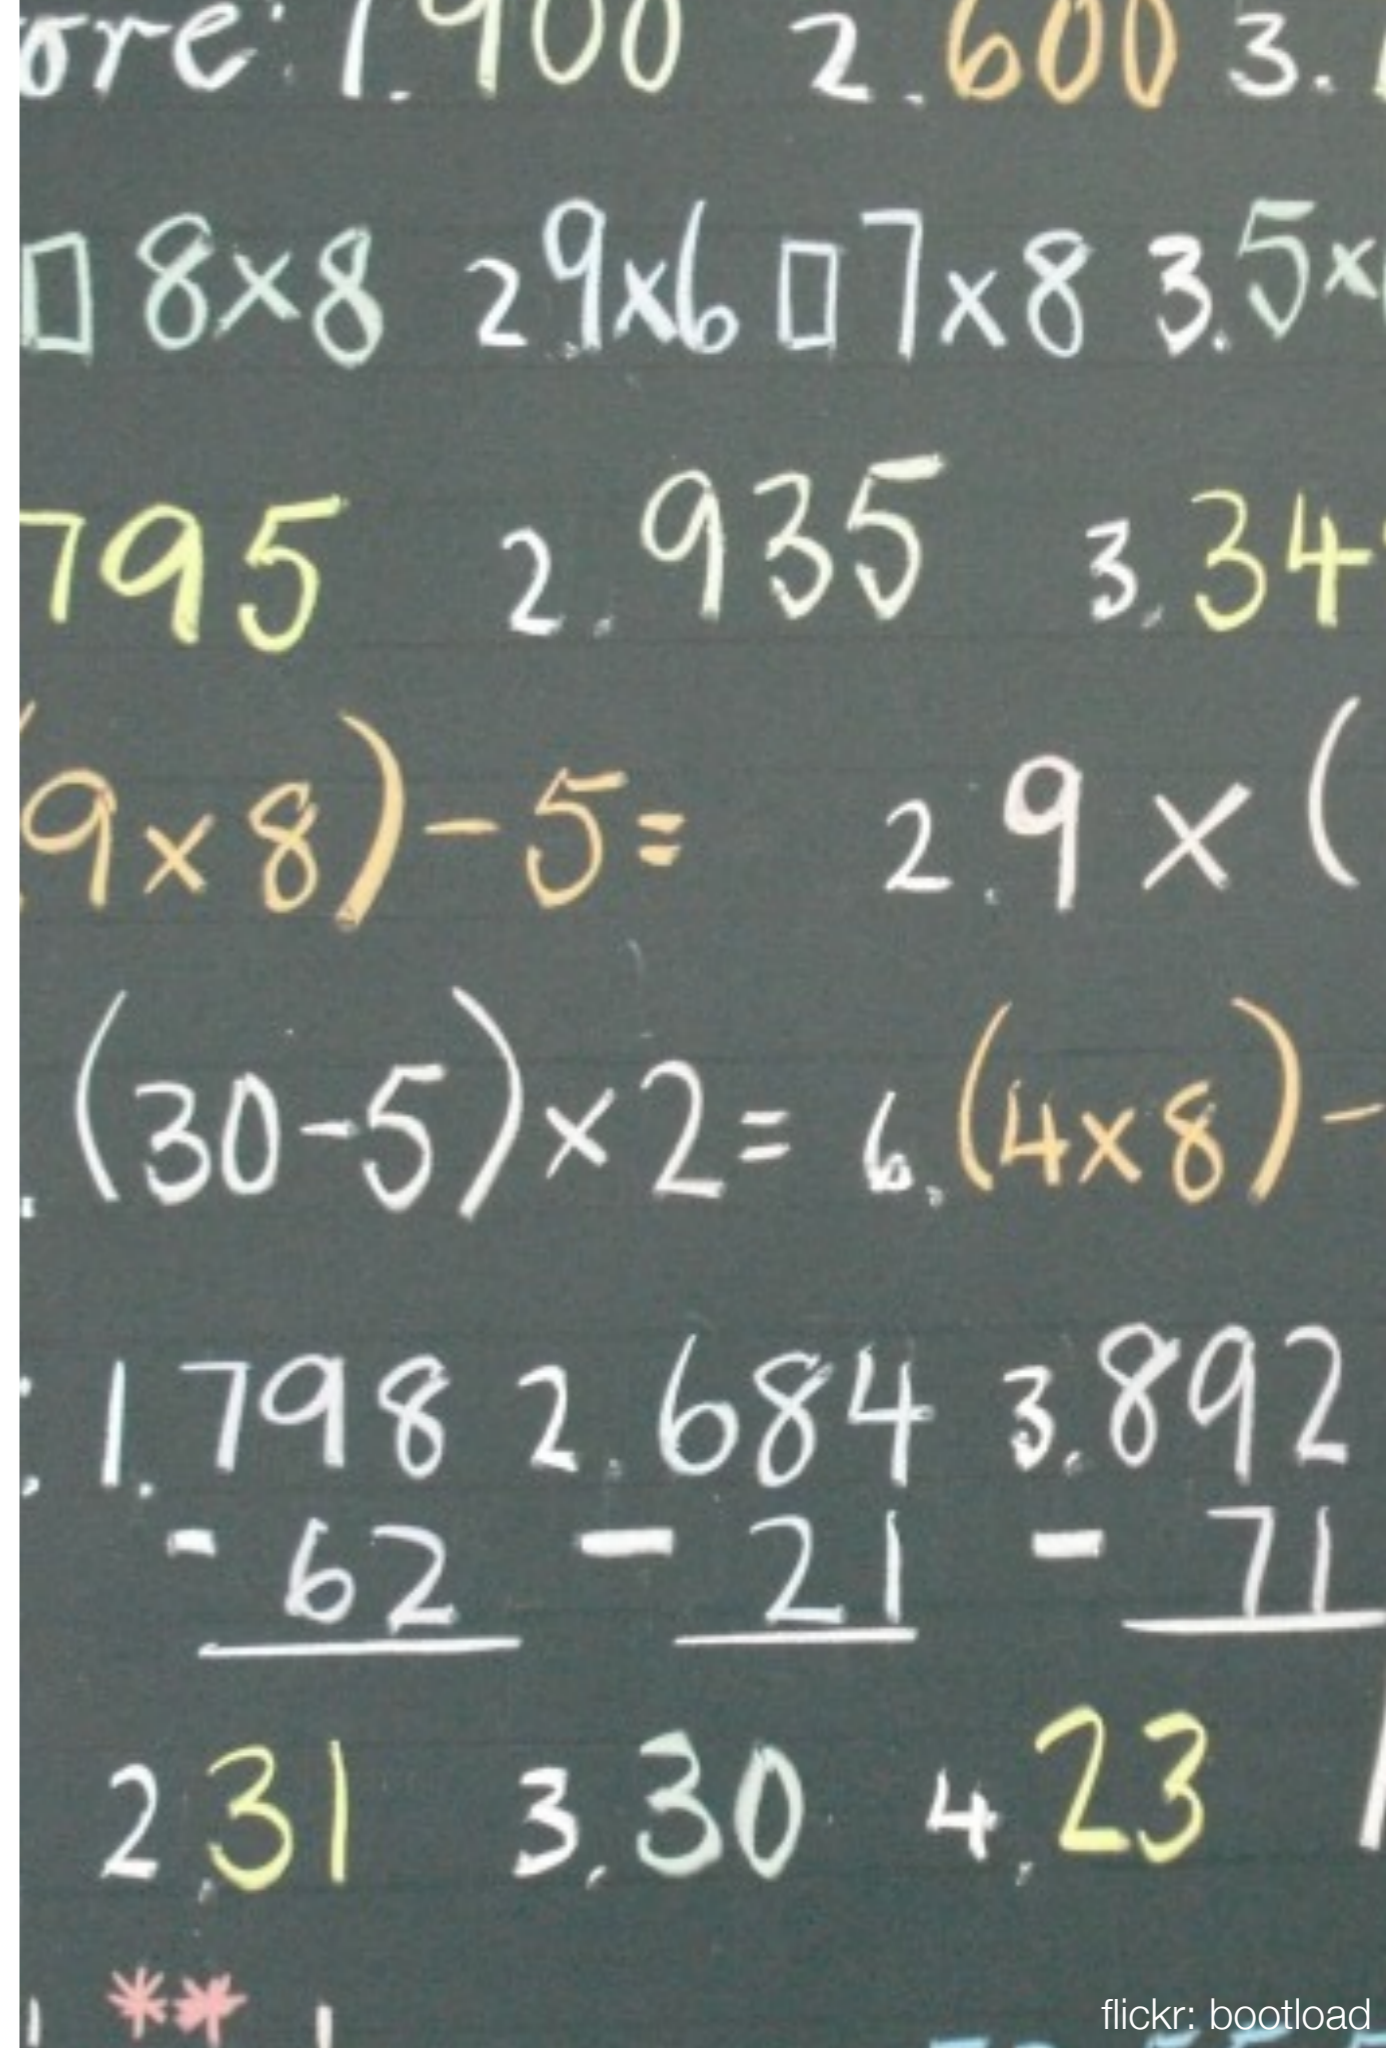 ore: 1. 900 2. 600 3.
□ 8×8 2. 9×6 □ 7×8 3. 5×
795 2. 935 3. 34
(9×8)-5= 2. 9×(
. (30-5)×2= 6. (4×8)-
: 1. 798 2. 684 3. 892
- 62 - 21 - 71
2. 31 3. 30 4. 23
**
flickr: bootload